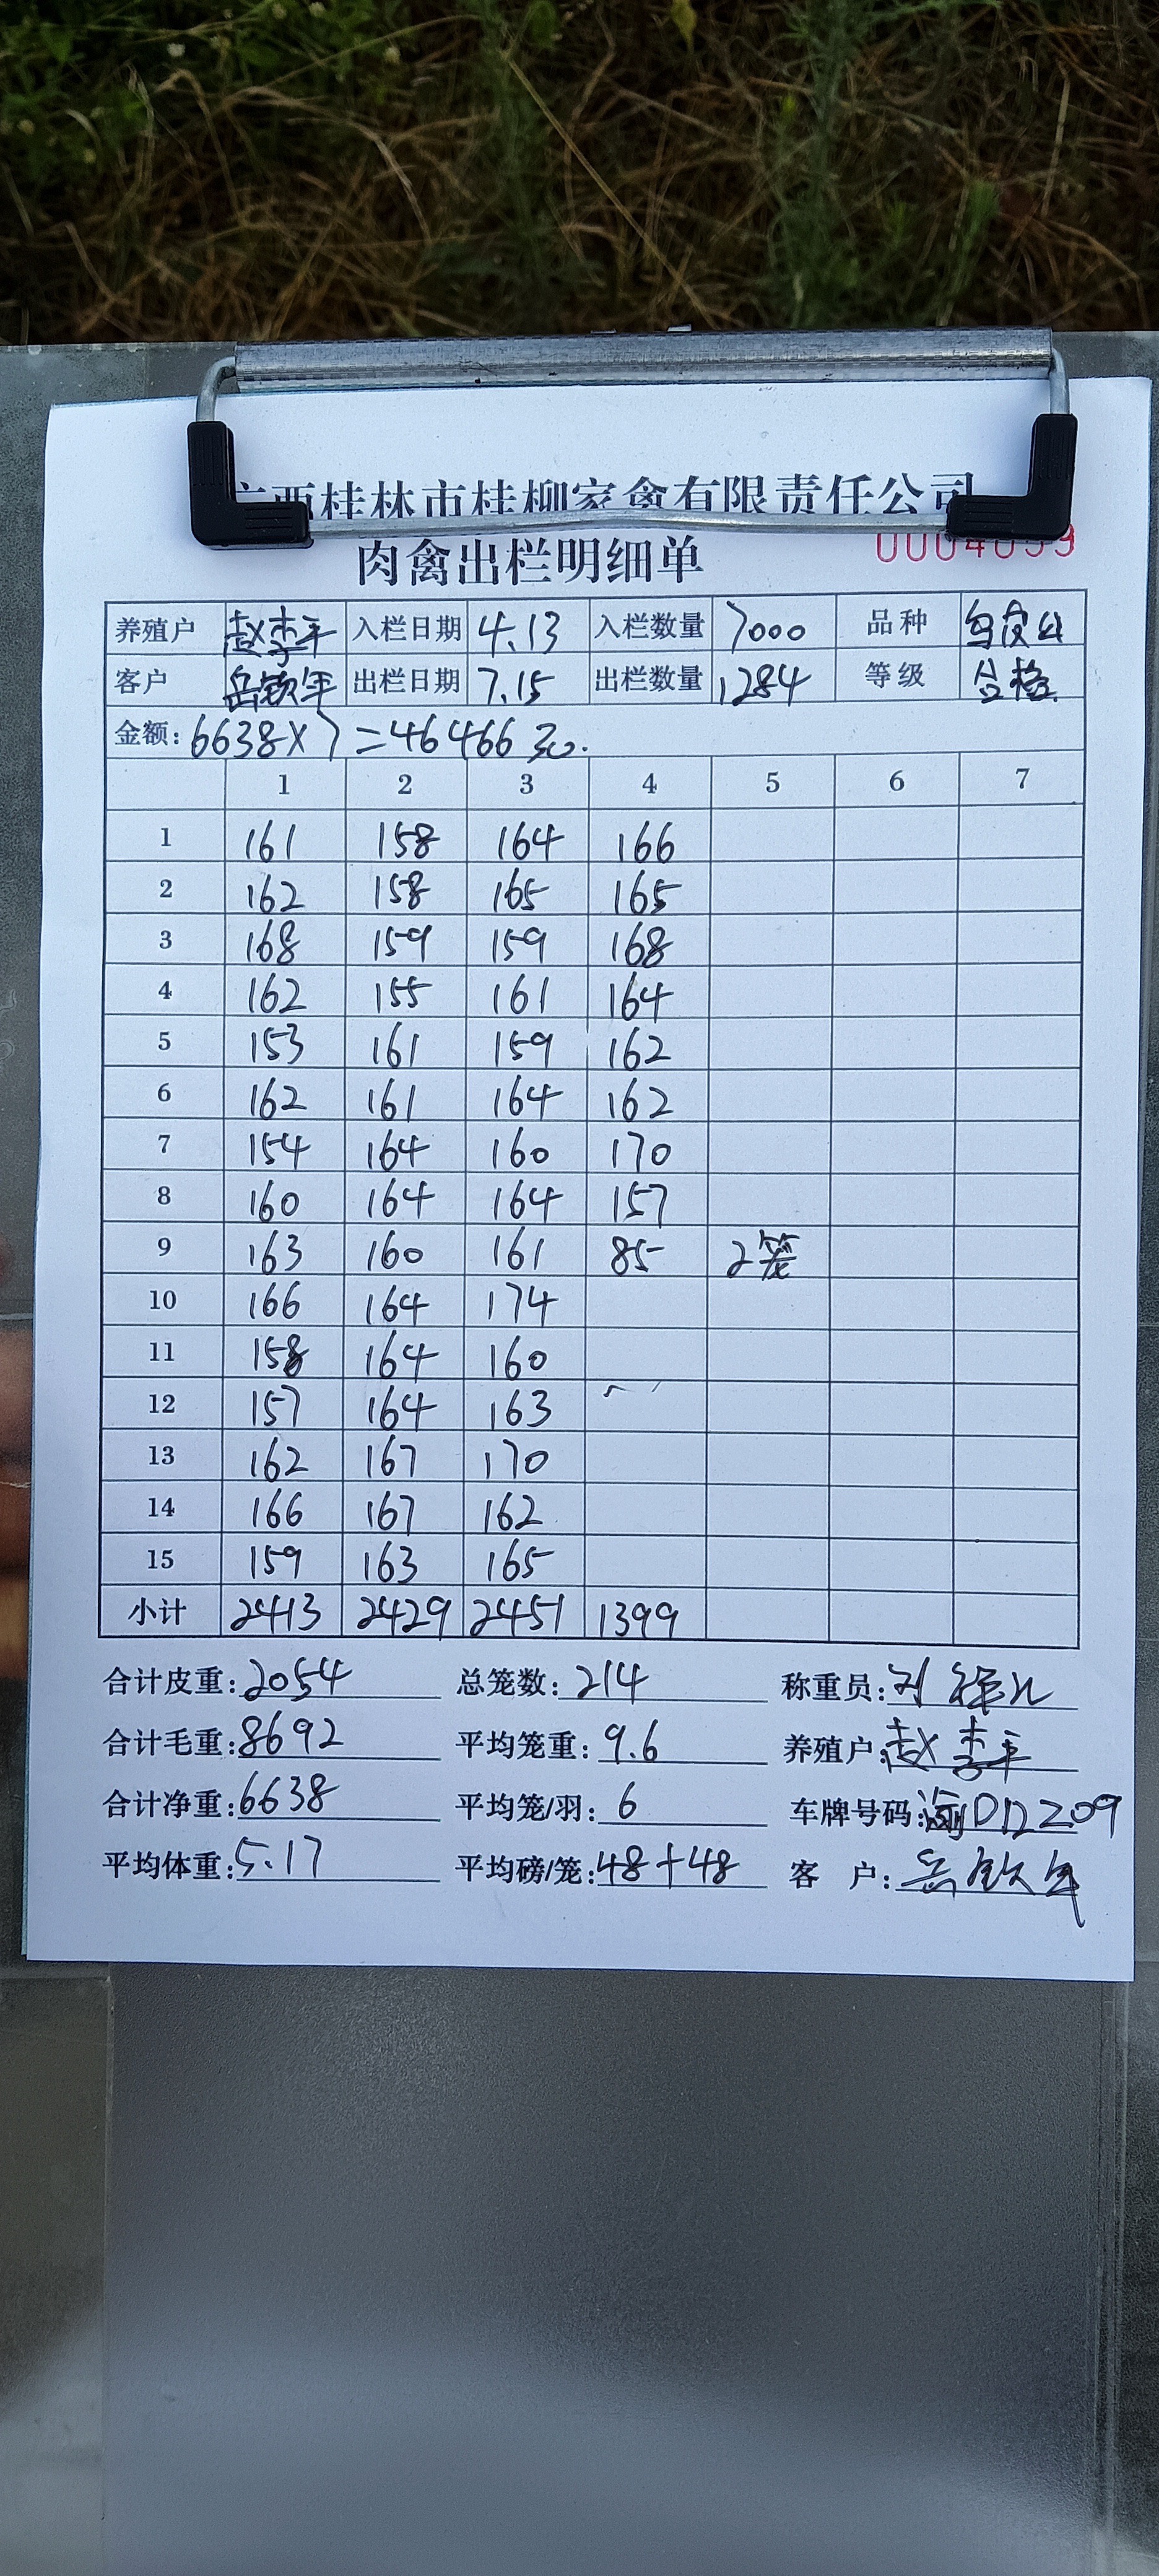 广西桂林市桂柳家禽有限责任公司
肉禽出栏明细单
养殖户 赵李平 入栏日期 4.13 入栏数量 7000 品种
客户 出栏日期 7.15 出栏数量 1284 等级 合格
金额: 6638×7=46466元.
1 2 3 4 5 6 7
1 161 158 164 166
2 162 158 165 165
3 168 159 159 168
4 162 155 161 164
5 153 161 159 162
6 162 161 164 162
7 154 164 160 170
8 160 164 164 157
9 163 160 161 85 2笼
10 166 164 174
11 158 164 160
12 157 164 163
13 162 167 170
14 166 167 162
15 159 163 165
小计 2413 2429 2451 1399
合计皮重: 2054 总笼数: 214 称重员: 刘
合计毛重: 8692 平均笼重: 9.6 养殖户: 赵李平
合计净重: 6638 平均笼/羽: 6 车牌号码: 渝D12209
平均体重: 5.17 平均磅/笼: 48+48 客户: